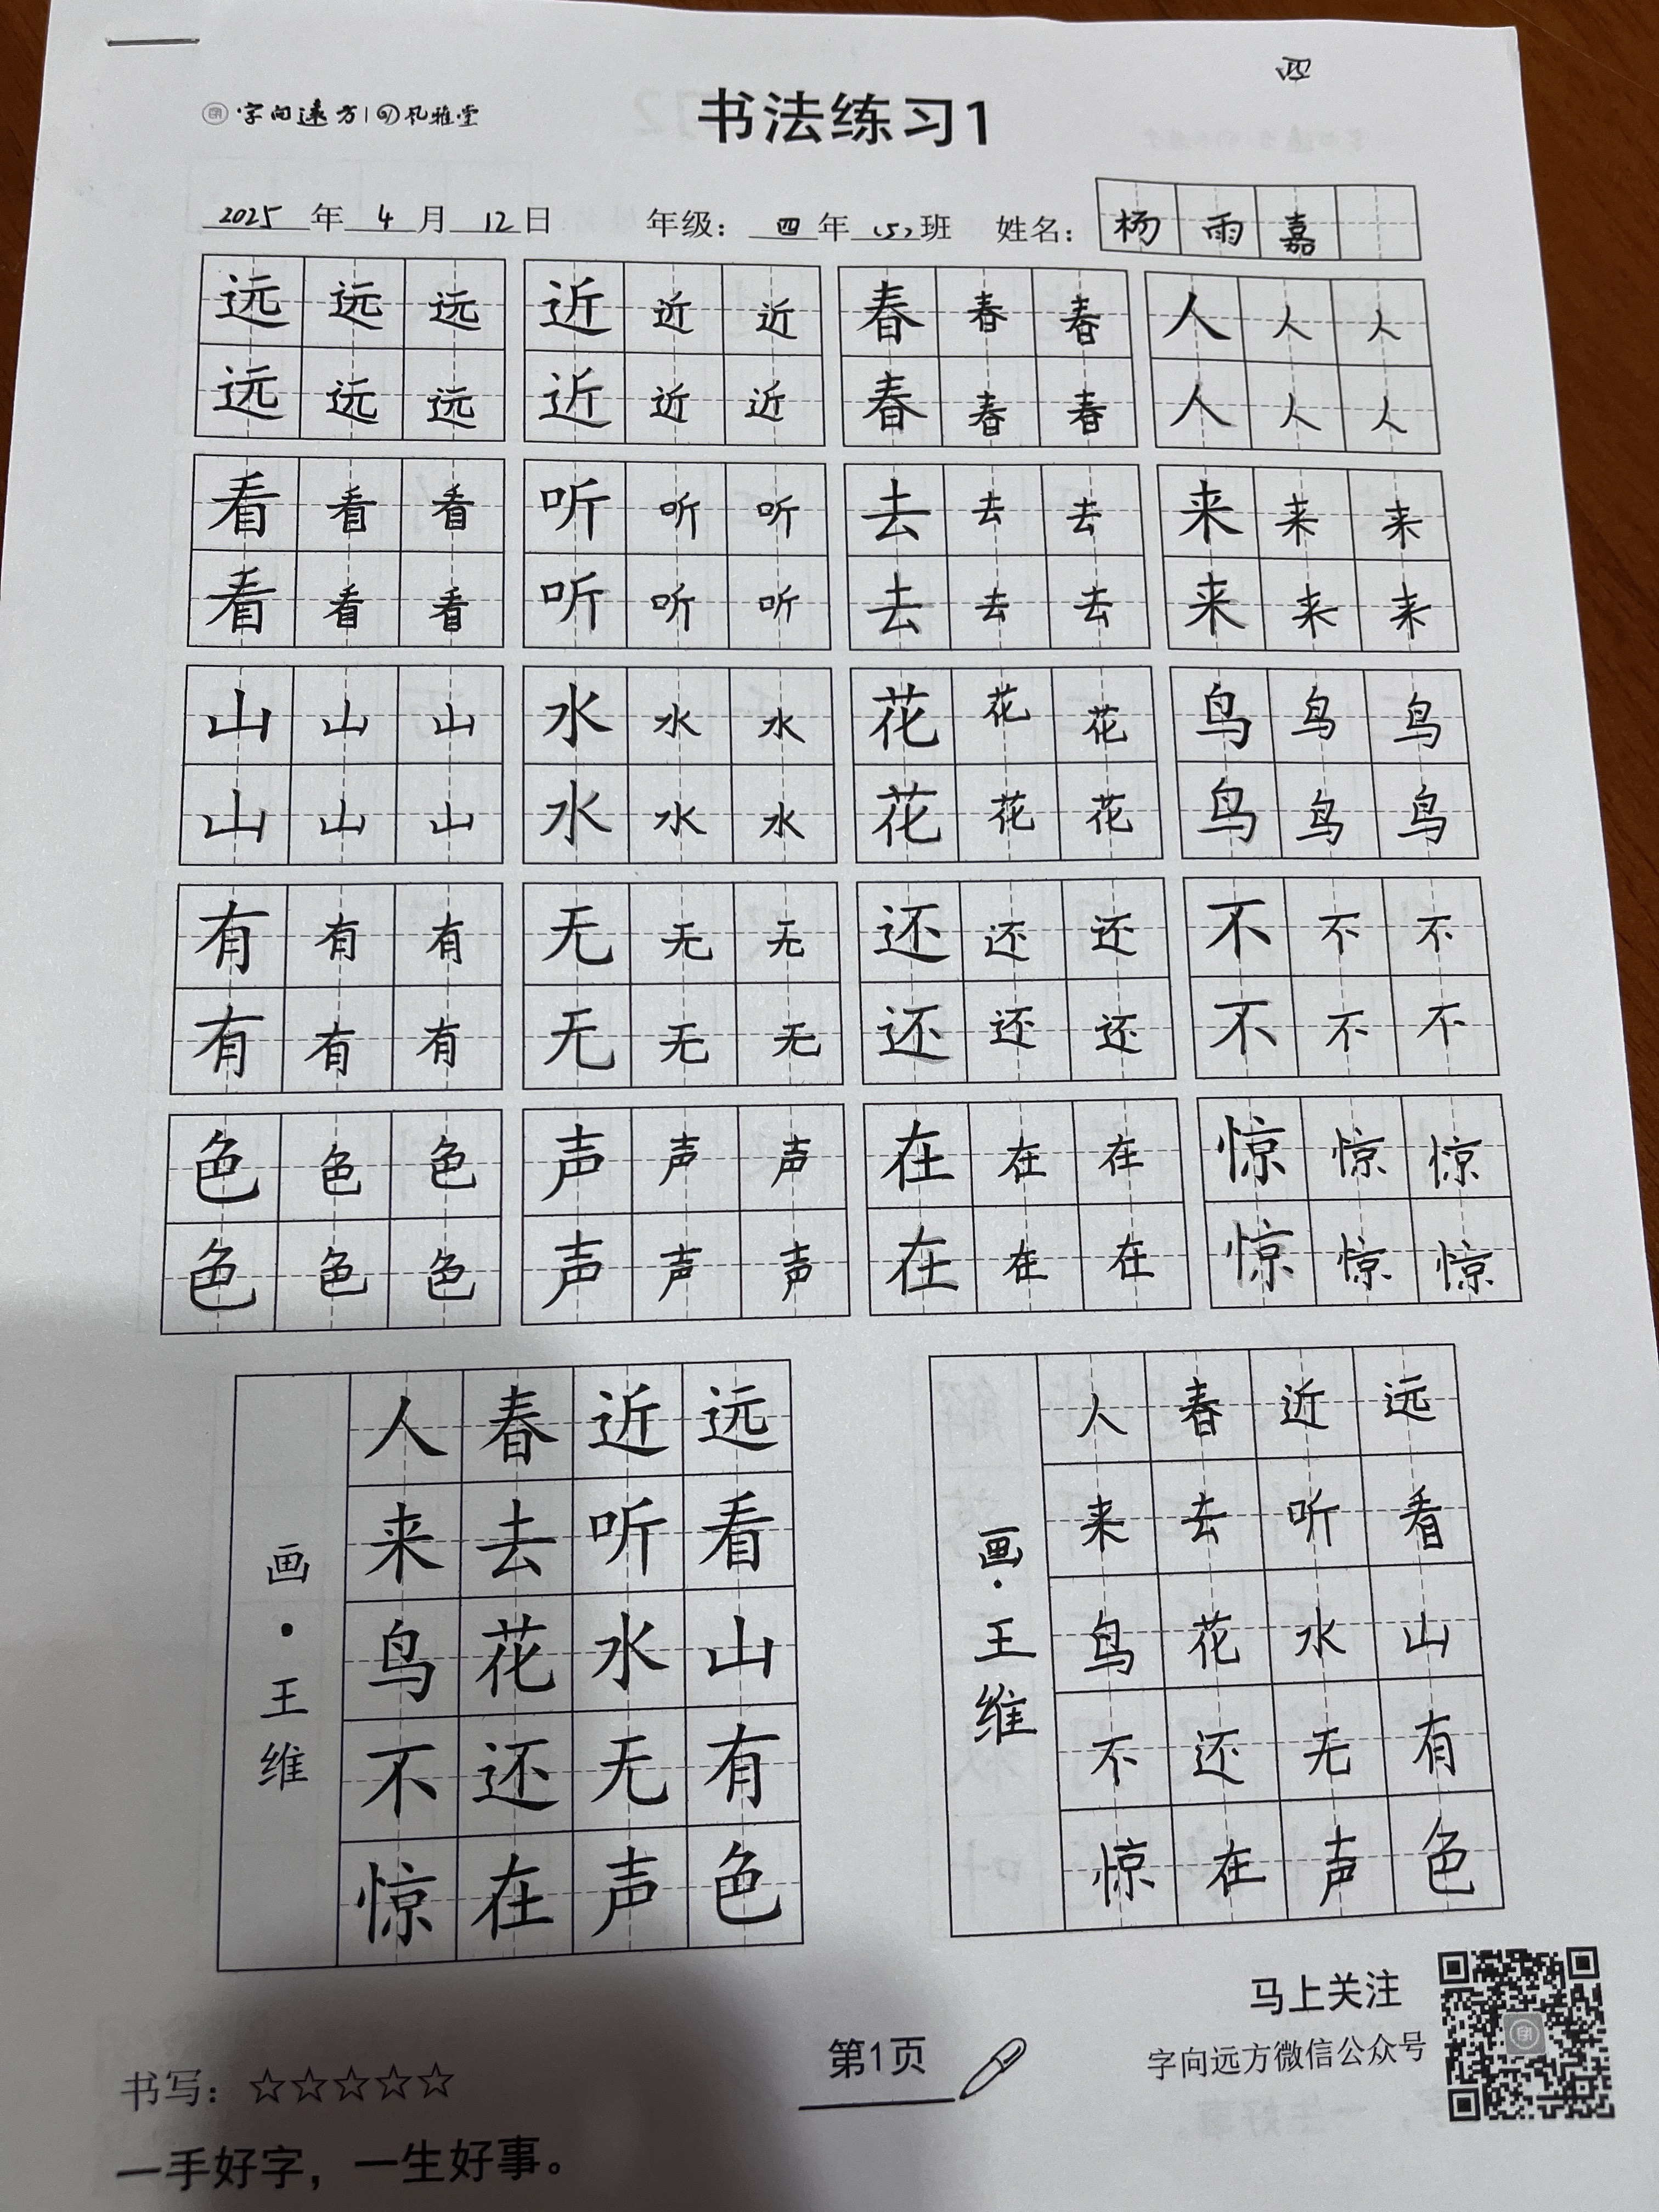 四
字向远方 孔雅堂
书法练习1
2025年4月12日 年级：四年(5)班 姓名：杨雨嘉
远远远 近近近 春春春 人人人
远远远 近近近 春春春 人人人
看看看 听听听 去去去 来来来
看看看 听听听 去去去 来来来
山山山 水水水 花花花 鸟鸟鸟
山山山 水水水 花花花 鸟鸟鸟
有有有 无无无 还还还 不不不
有有有 无无无 还还还 不不不
色色色 声声声 在在在 惊惊惊
色色色 声声声 在在在 惊惊惊
远看山有色
近听水无声
春去花还在
人来鸟不惊
画·王维
远看山有色
近听水无声
春去花还在
人来鸟不惊
画·王维
书写：☆☆☆☆☆
一手好字，一生好事。
第1页
马上关注
字向远方微信公众号